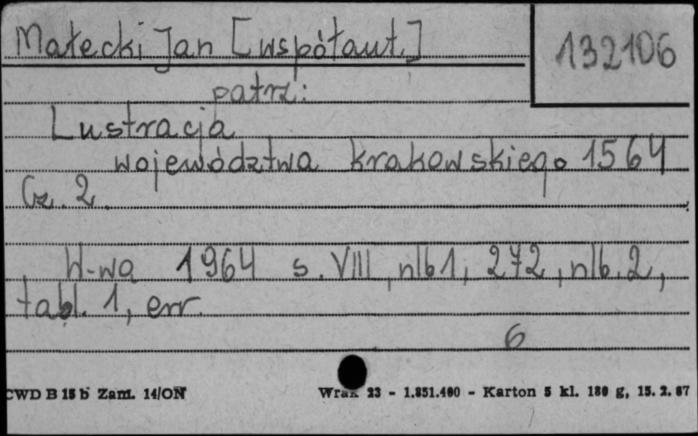 Małecki Jan [współaut.]
132106
patrz:
Lustracja
województwa krakowskiego 1564
Cz. 2.
W-wa 1964 s. VIII, nlb 1, 272, nlb. 2,
tabl. 1, err.
6
CWD B 15 b Zam. 14/ON
23 - 1.851.400 - Karton 5 kl. 180 g, 15. 2. 67